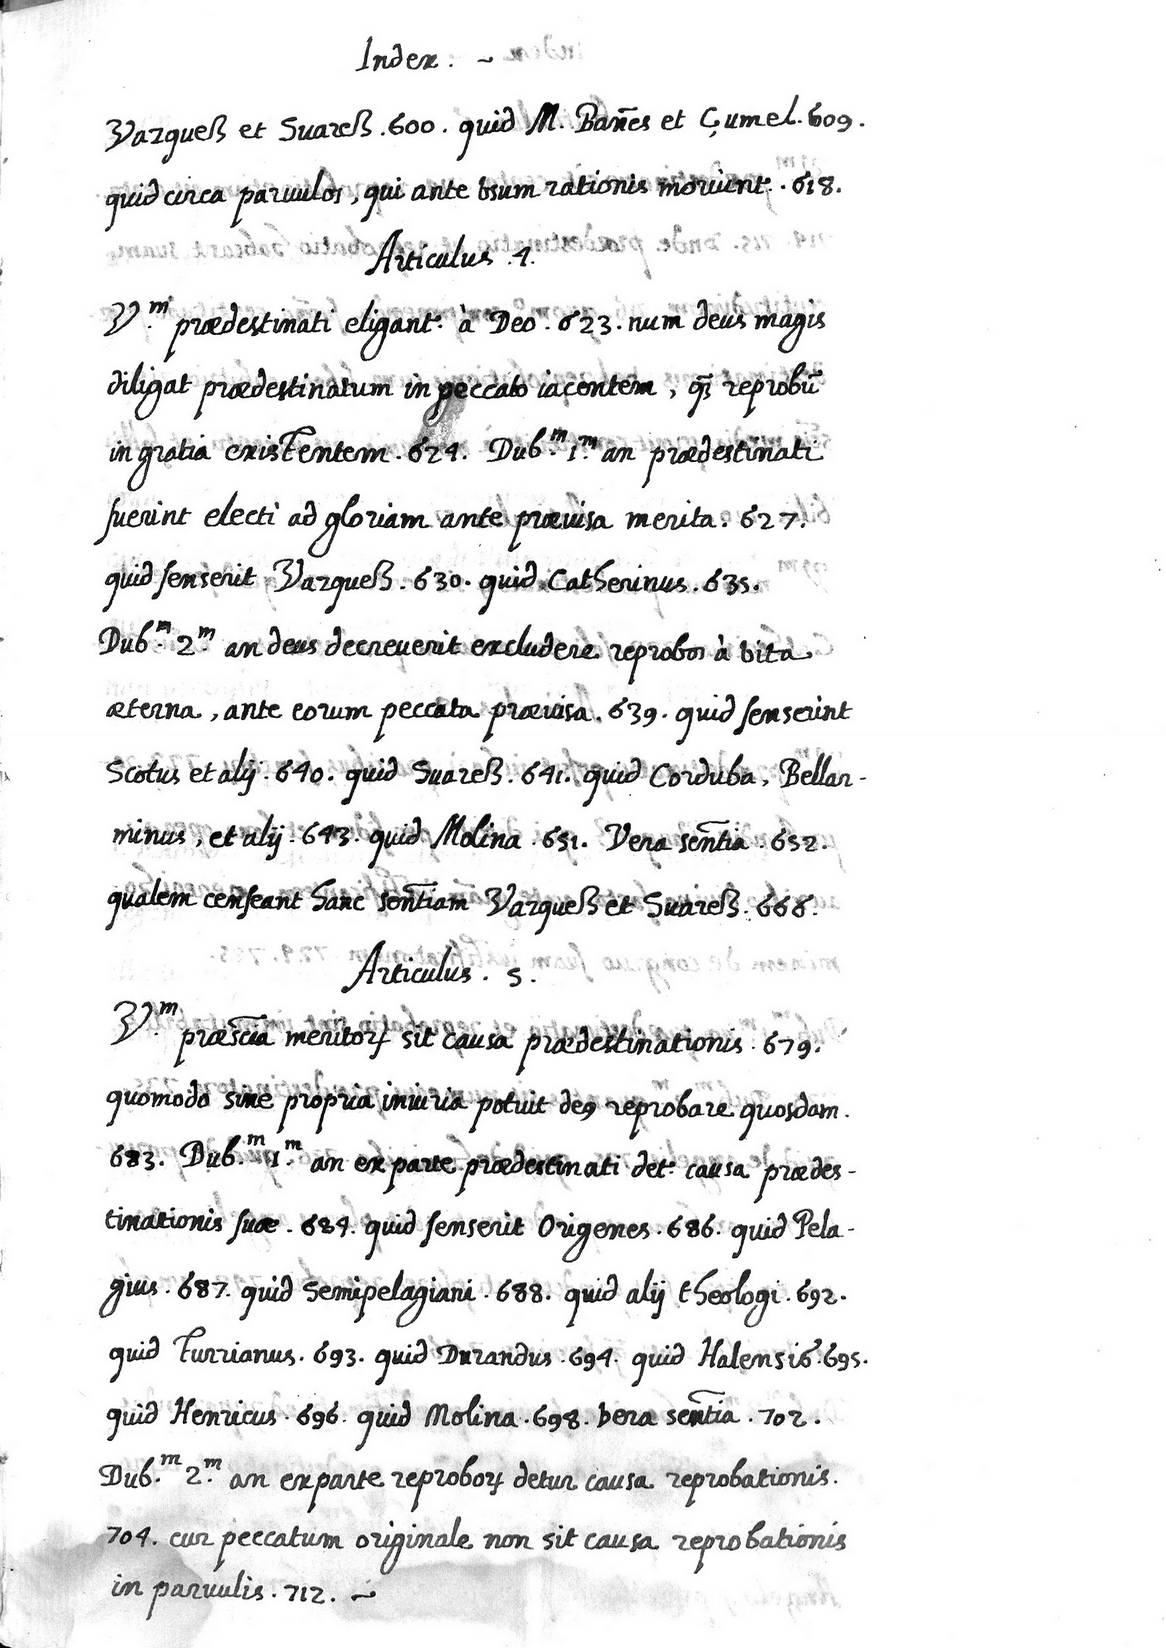 Index. ~
Vazqueß et Suareß. 600. quid M. Bañes et Çumel. 609.
quid circa paruulos, qui ante vsum rationis moriunt.r 618.
Articulus 4.
V.m prædestinati eligant.r à Deo. 623. num deus magis
diligat prædestinatum in peccato iacentem, qm̃ reprobũ
in gratia existentem. 624. Dub.m 1.m an prædestinati
fuerint electi ad gloriam ante præuisa merita. 627.
quid senserit Vazqueß. 630. quid Catherinus. 635.
Dub.m 2.m an deus decreuerit excludere reprobos à vita
æterna, ante eorum peccata præuisa. 639. quid senserint
Scotus et alij. 640. quid Suareß. 641. quid Corduba, Bellar-
minus, et alij. 643. quid Molina. 651. Vera sent̃ia. 652.
qualem censeant hanc sent̃iam Vazqueß et Suareß. 668.
Articulus. 5.
V.m præsc̃ia meritoꝝ sit causa prædestinationis. 679.
quomodo sine propria iniuria potuit deꝯ reprobare quosdam.
683. Dub.m 1.m an ex parte prædestinati det.r causa prædes-
tinationis suæ. 684. quid senserit Origenes. 686. quid Pela-
gius. 687. quid Semipelagiani. 688. quid alij theologi. 692.
quid Turrianus. 693. quid Durandus. 694. quid Halensis. 695.
quid Henricus. 696. quid Molina. 698. vera sent̃ia. 702.
Dub.m 2.m an ex parte reproboꝝ detur causa reprobationis.
704. cur peccatum originale non sit causa reprobationis
in paruulis. 712. ~